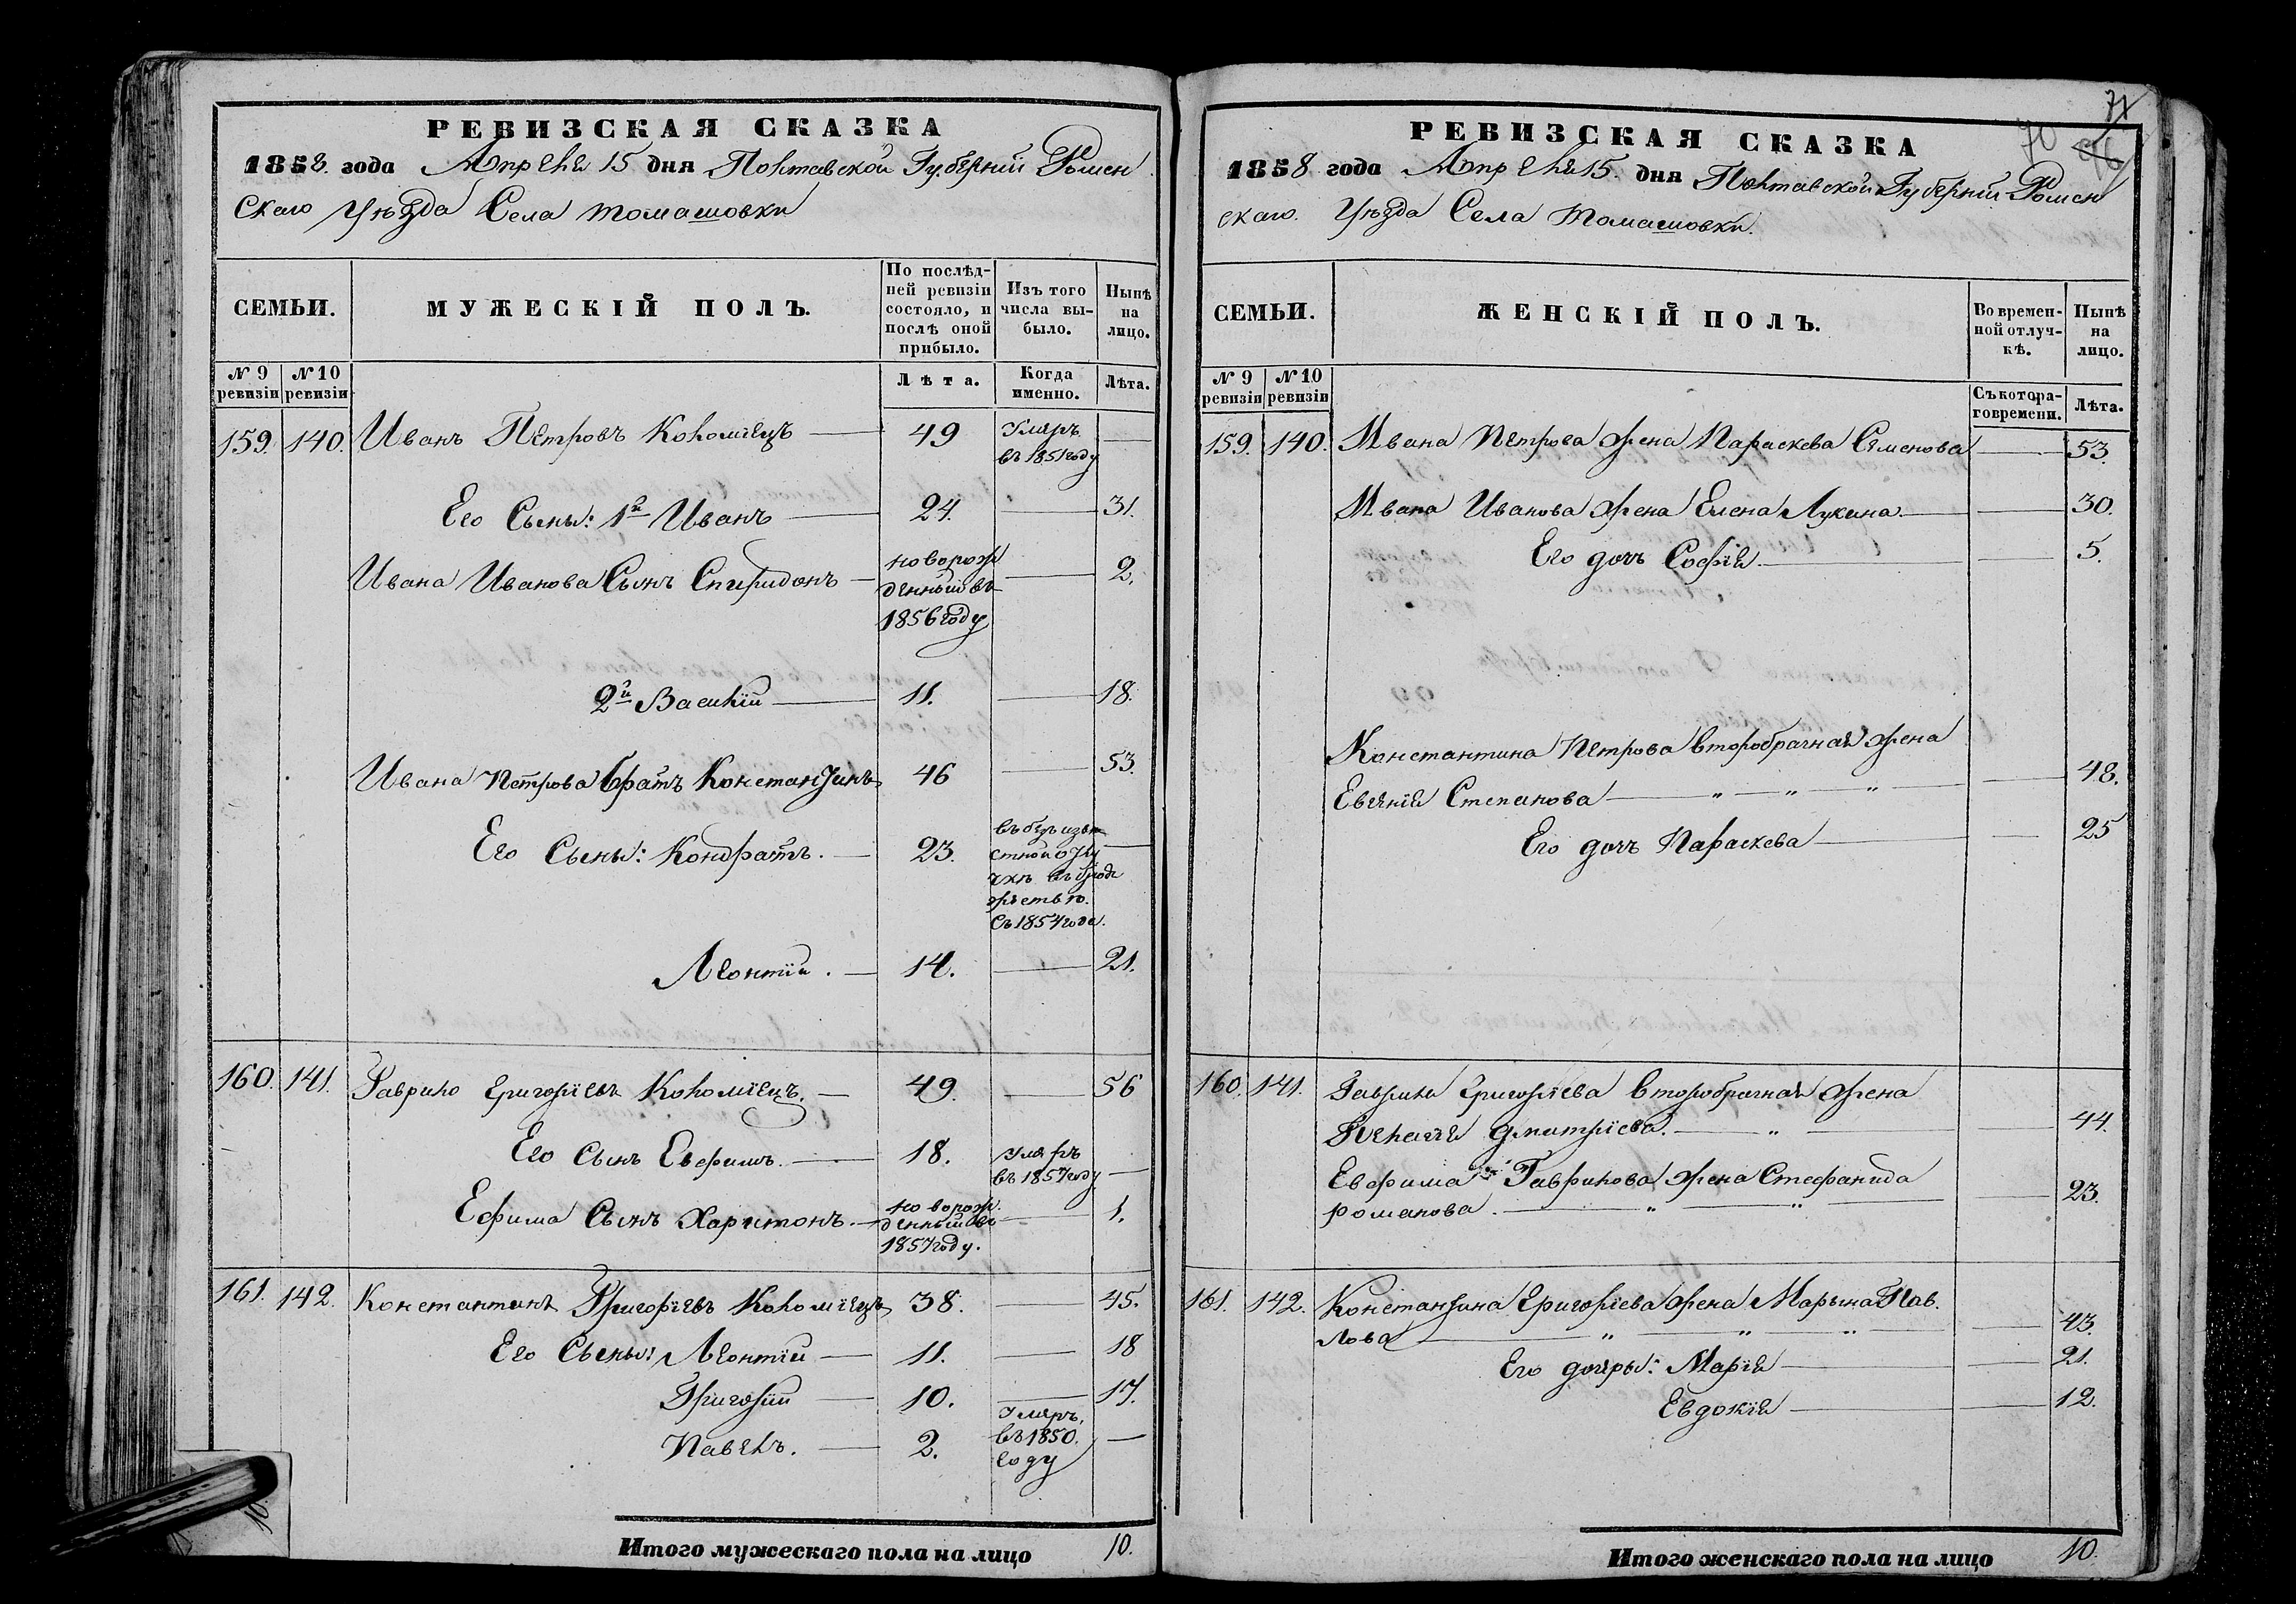 РЕВИЗСКАЯ СКАЗКА
1858. года Апреля 15 дня Полтавской Губерніи Ромен
скаго Уѣзда Села Томашовки
СЕМЬИ.
МУЖЕСКІЙ ПОЛЪ.
По послѣд-
ней ревизіи
состояло, и
послѣ оной
прибыло.
Изъ того
числа вы-
было.
Нынѣ
на
лицо.
№ 9
ревизіи
№ 10
ревизіи
Лѣта.
Когда
именно.
Лѣта.
159. 140. Иванъ Петровъ Коломіецъ — 49 Умеръ въ 1851 году —
Его Сыны: 1й Иванъ — 24. — 31.
Ивана Иванова Сынъ Спиридонъ — новорожденный въ 1856 году — 2.
2й Василій — 11. — 18.
Ивана Петрова братъ Константинъ 46 — 53.
Его Сыны: Кондратъ. — 23. въ безъизвѣстной отлучкѣ за бродяжествъю. съ 1854 года. —
Леонтій. — 14. — 21.
160. 141. Гаврило Григоріевъ Коломіецъ. — 49. — 56
Его Сынъ Евфимъ. — 18. Умеръ въ 1857 году —
Ефима Сынъ Харитонъ. — новорожденный въ 1857 году. — 1.
161. 142. Константинъ Григоріевъ Коломіецъ 38. — 45.
Его Сыны: Леонтій — 11. — 18
Григорій — 10. — 17.
Павелъ. — 2. Умеръ, въ 1850. году —
Итого мужескаго пола на лицо 10.
71
70
РЕВИЗСКАЯ СКАЗКА
1858 года Апреля 15. дня Полтавской Губерніи Ромен
скаго. Уѣзда Села Томашовки.
СЕМЬИ.
ЖЕНСКІЙ ПОЛЪ.
Во времен-
ной отлуч-
кѣ.
Нынѣ
на
лицо.
№ 9
ревизіи
№ 10
ревизіи
Съ котора-
го времени.
Лѣта.
159. 140. Ивана Петрова жена Параскева Семенова — 53.
Ивана Иванова жена Елена Лукина. — 30.
Его дочь Софія. — 5.
Константина Петрова второбрачная жена
Евгенія Степанова — „ — „ — „ — 48.
Его дочь Параскева — 25
160. 141. Гаврила Григоріева второбрачная жена
Пелагія Дмитріева. — „ — 44.
Евфима Гаврилова жена Стефанида
Романова. — „ — „ — 23.
161. 142. Константина Григоріева жена Марына Пав.
лова — „ — „ — „ — 43.
Его дочеры: Марія — 21.
Евдокія — 12.
Итого женскаго пола на лицо 10.